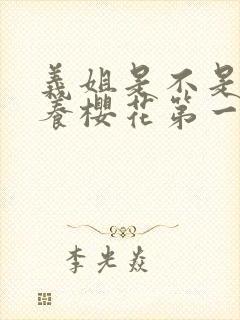 義姐是不是
養櫻花第一
李光焱